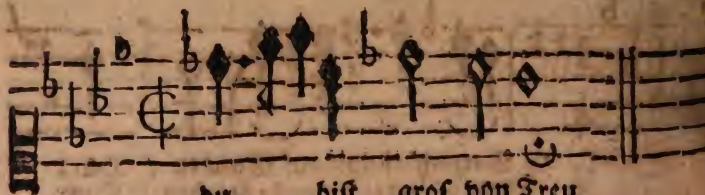 du bist groß von Treu